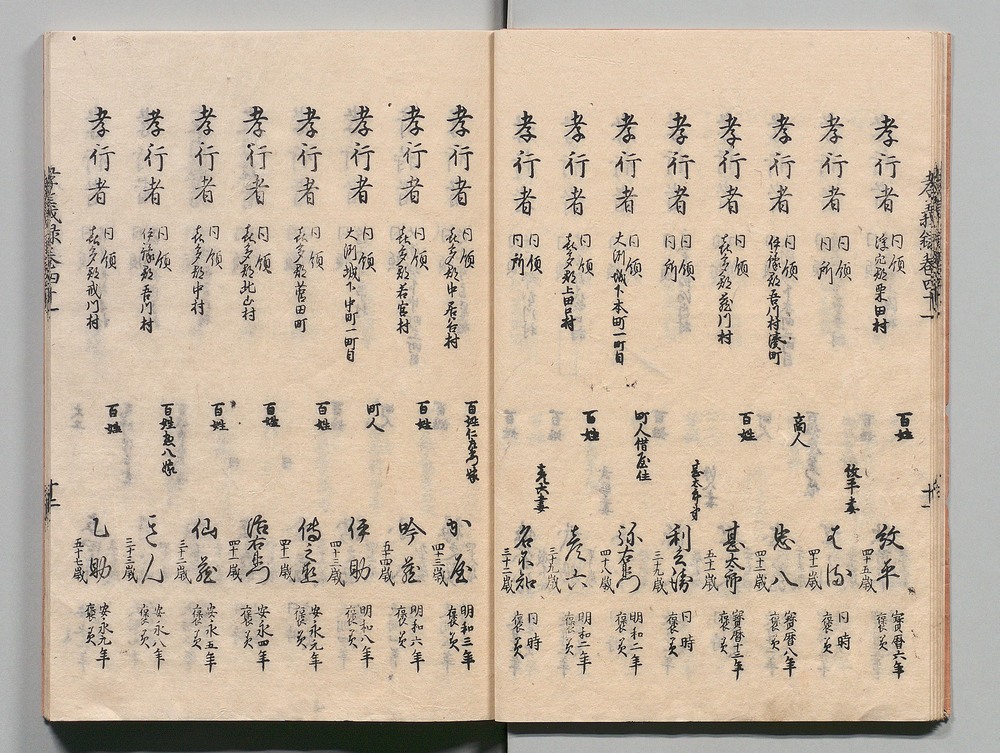 孝行者 同領 浮穴郡栗田村 百姓 紋平 四十五歳 寶暦六年 褒美
孝行者 同領 同所 紋平妻 四十一歳 同時 褒美
孝行者 同領 伊豫郡吾川村湊町 商人 忠八 四十二歳 寶暦八年 褒美
孝行者 同領 喜多郡藏川村 百姓 甚太郎 五十二歳 寶暦十二年 褒美
孝行者 同領 同所 利兵衛 三十九歳 同時 褒美
孝行者 同領 大洲城下本町一町目 町人借屋住 弥右衛門 四十八歳 明和二年 褒美
孝行者 同領 喜多郡上田口村 百姓 彦六 三十九歳 明和二年 褒美
孝行者 同領 同所 彦六妻 名不知 三十二歳 同時 褒美
孝行者 同領 喜多郡中居谷村 百姓仁右衛門嫁 か屋 四十三歳 明和二年 褒美
孝行者 同領 喜多郡若宮村 百姓 吟藏 五十四歳 明和六年 褒美
孝行者 同領 大洲城下中町一町目 町人 伊助 四十三歳 明和八年 褒美
孝行者 同領 喜多郡菅田町 百姓 傳之丞 四十一歳 安永元年 褒美
孝行者 同領 喜多郡北山村 百姓 治右衛門 四十二歳 安永四年 褒美
孝行者 同領 喜多郡中村 百姓 仙藏 三十二歳 安永五年 褒美
孝行者 同領 伊豫郡吾川村 百姓 八嫁 三十三歳 安永八年 褒美
孝行者 同領 喜多郡戒川村 百姓 乙助 五十七歳 安永九年 褒美
孝義録卷四十一
十二